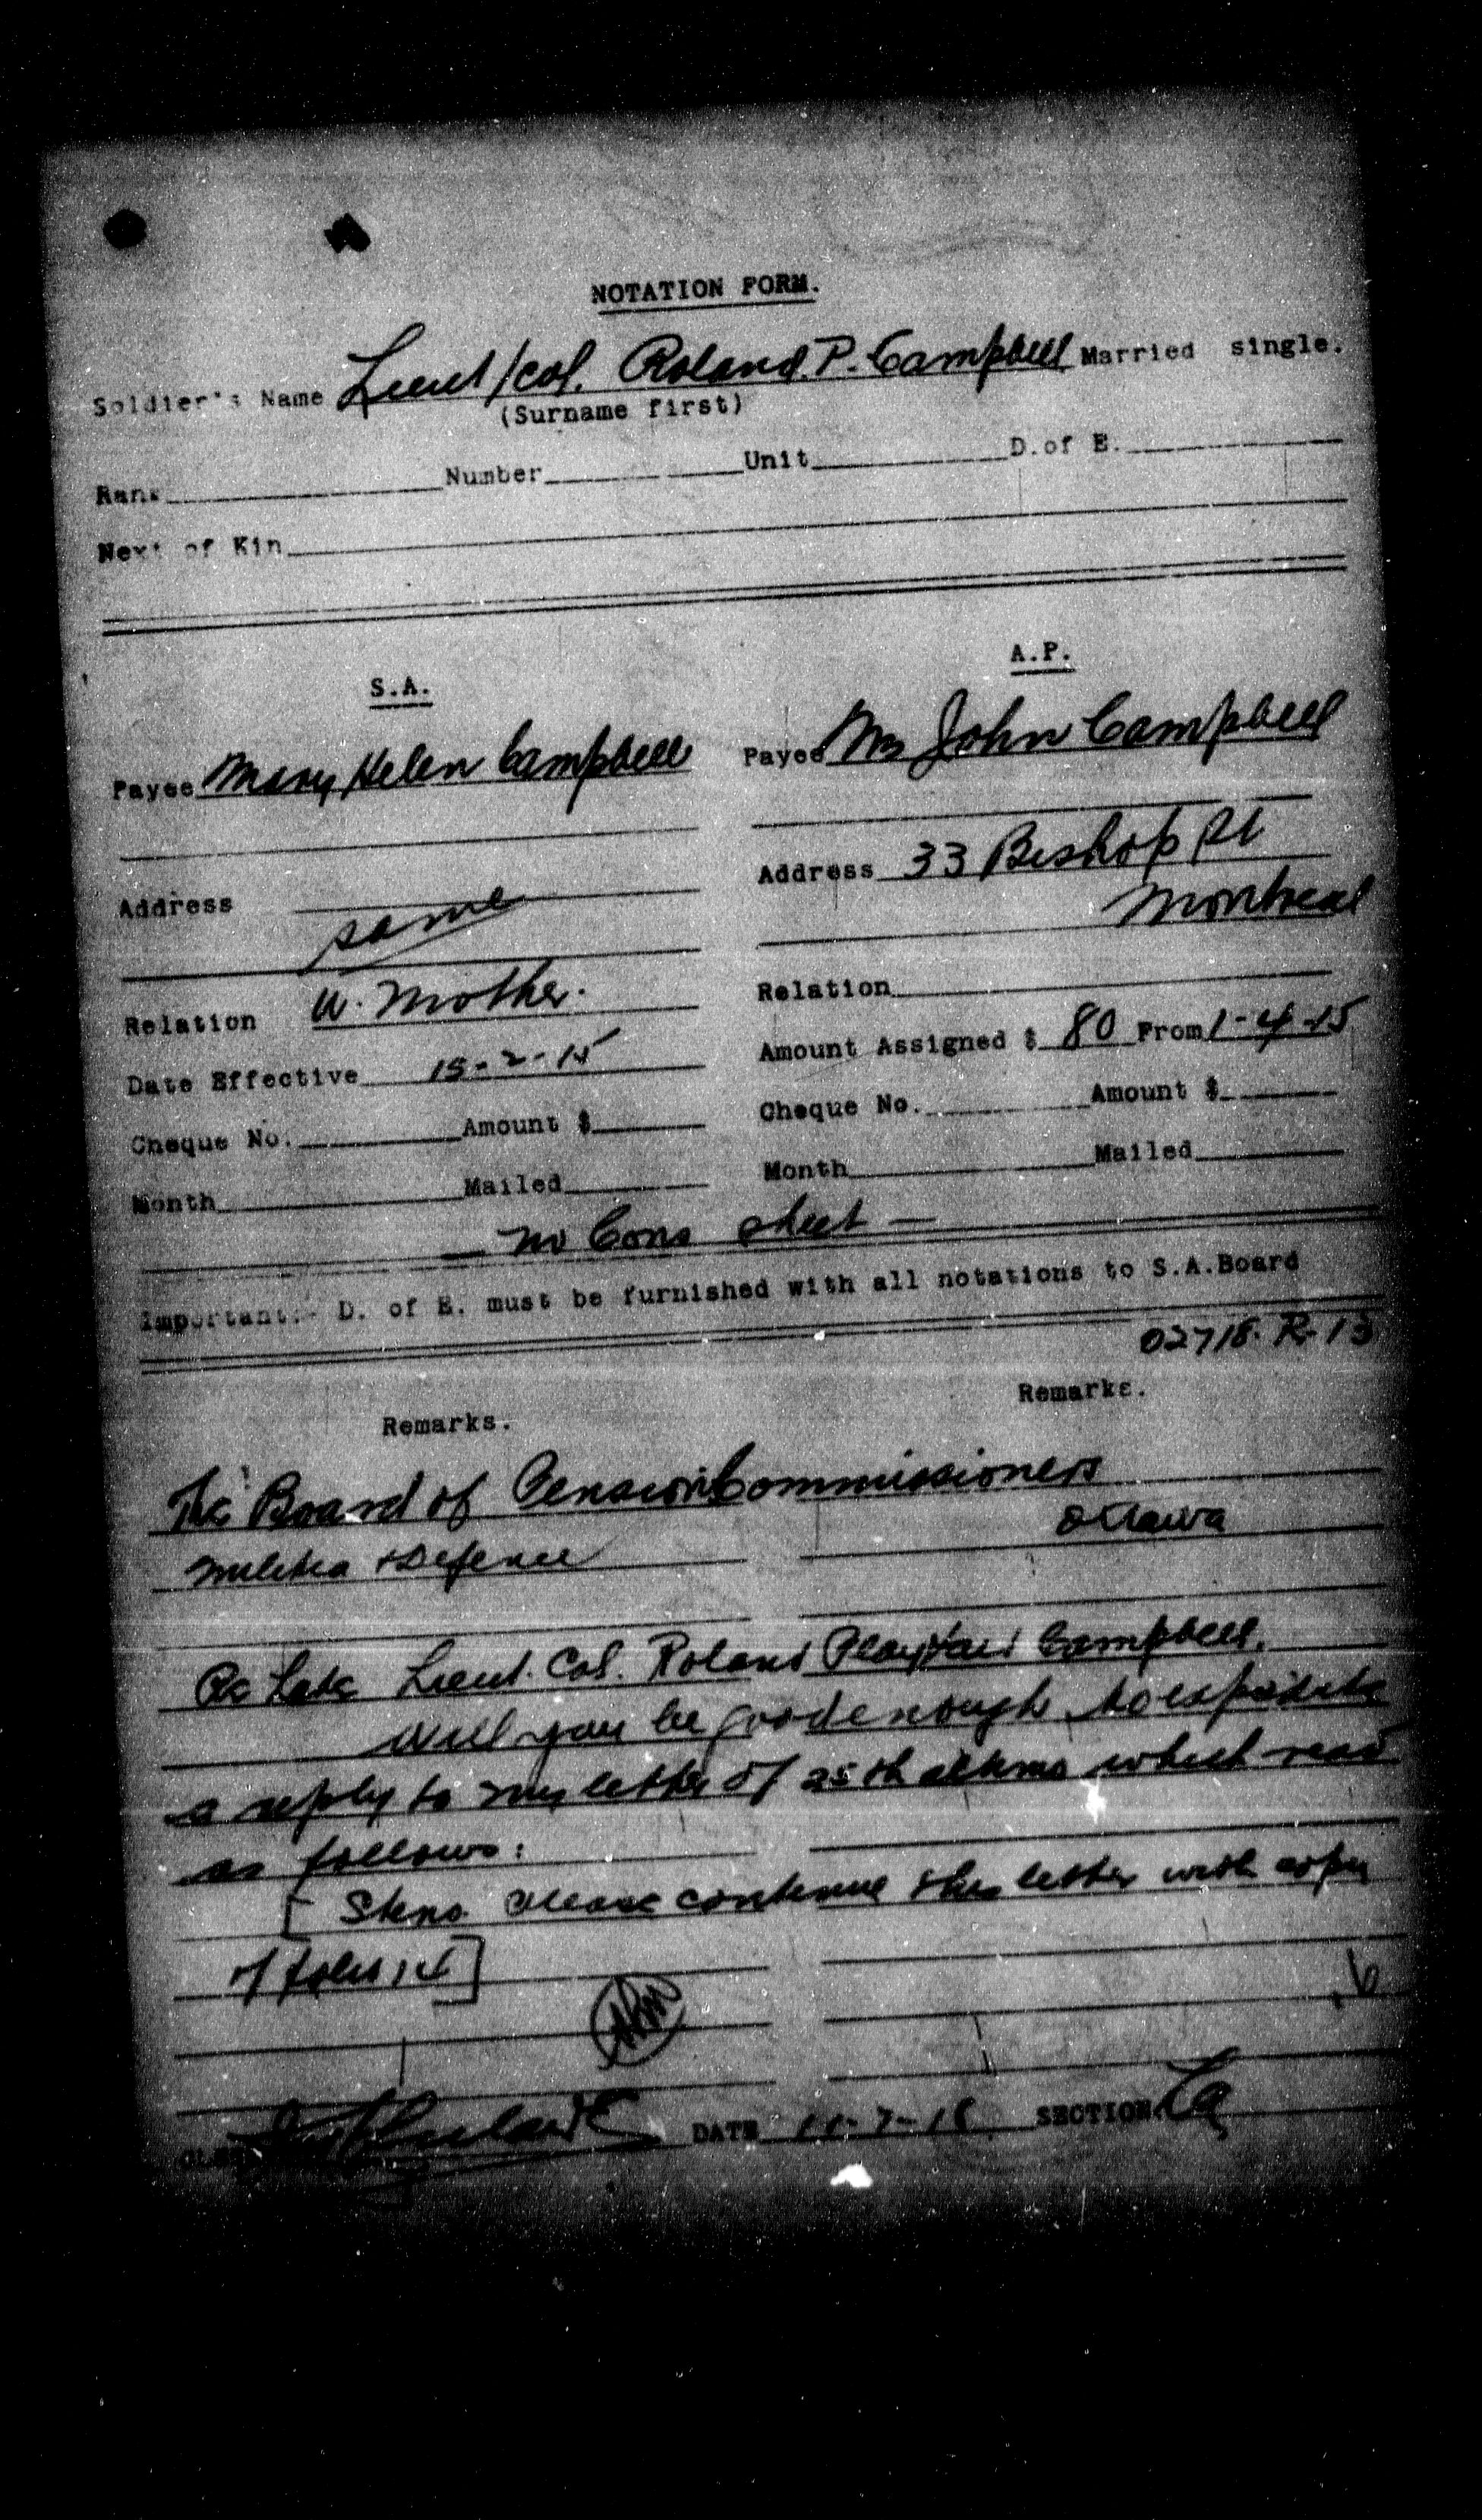 NOTATION FORM.
Soldier's Name Lieut/Col. Roland. P. Campbell Married single.
(Surname first)
Rank Number Unit D. of E.
Next of Kin
S.A. A.P.
Payee Mary Helen Campbell Payee Mrs John Campbell
Address same Address 33 Bishop St
Montreal
Relation W. Mother. Relation
Date Effective 15-2-15 Amount Assigned $ 80 From 1-4-15
Cheque No. Amount $ Cheque No. Amount $
Month Mailed Month Mailed
— No Cons sheet —
Important:- D. of E. must be furnished with all notations to S.A.Board
02718. R-13
Remarks. Remarks.
The Board of Pension Commissioners
Ottawa
Militia & Defence
Re Late Lieut. Col. Roland Playfair Campbell.
Will you be good enough to expedite
a reply to my letter of 25th ultimo which read
as follows:
[ Steno please continue this letter with copy
of folio 14 ]
DATE 11-7-18 SECTION Ca